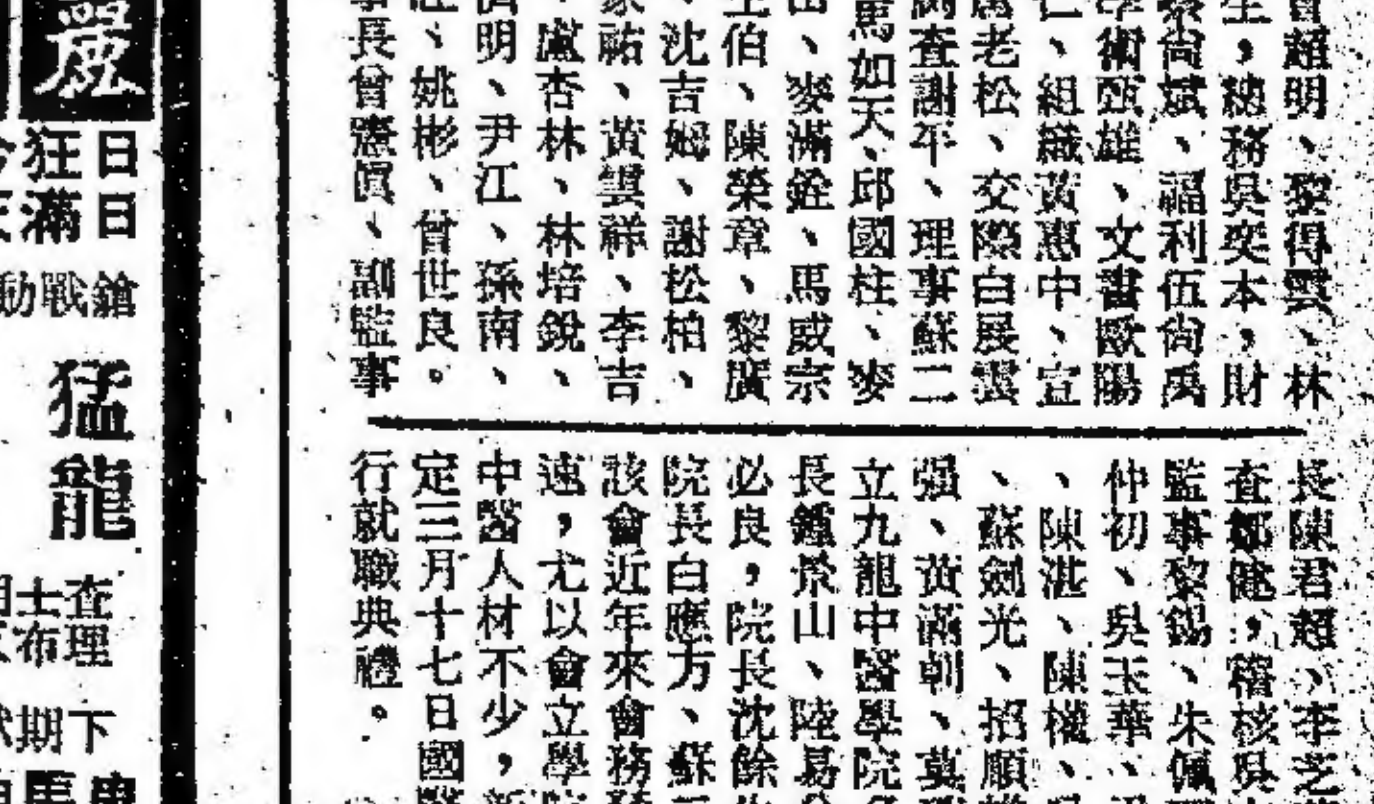 會趙明、黎得雲、林
生，總務吳奕本，財
黎尙斌、福利伍尙禹
學術甄雄、文書歐陽
仁、組織黃惠中、宣
老松、交際白展雲
調查謝平、理事蘇二
馬如天、邱國柱、麥
、麥滿銓、馬威宗
伯、陳榮章、黎廣
、沈吉姆、謝松柏、
家祐、黃雲祥、李吉
、盧杏林、林培銳、
明、尹江、孫南、
、姚彬、曾世良。
事長曾憲眞、副監事
長陳君趙、李
查鄒健，稽核吳
監事黎錫、朱佩
仲初、吳玉華、
、陳湛、陳權、
、蘇劍光、招順
强、黃滿朝、莫
立九龍中醫學院
長鍾景山、陸易
必良，院長沈餘
院長白應方、蘇
該會近年來會務
速，尤以會立學院
中醫人材不少，新
定三月十七日國醫
行就職典禮。
日日
狂滿
鎗戰動
猛龍
查理
士布
下期
馬